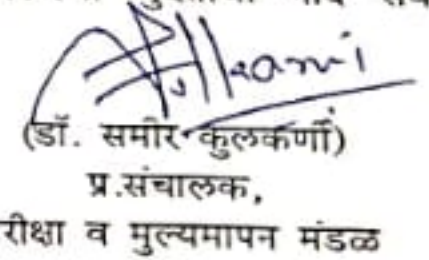 (डॉ. समीर कुलकर्णी)
प्र.संचालक,
रीक्षा व मुल्यमापन मंडळ